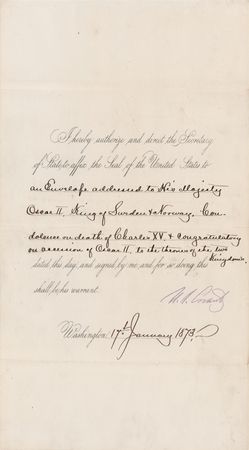 I hereby authorize and direct the Secretary
of State to affix the Seal of the United States to
an Envelope addressed to His Majesty
Oscar II, King of Sweden & Norway, Con-
dolence on death of Charles XV, & congratulatory
on accession of Oscar II, to the throne of the two
kingdoms.
dated this day, and signed by me, and for so doing this
shall be his warrant.
U.S. Grant
Washington, 17th January 1873.